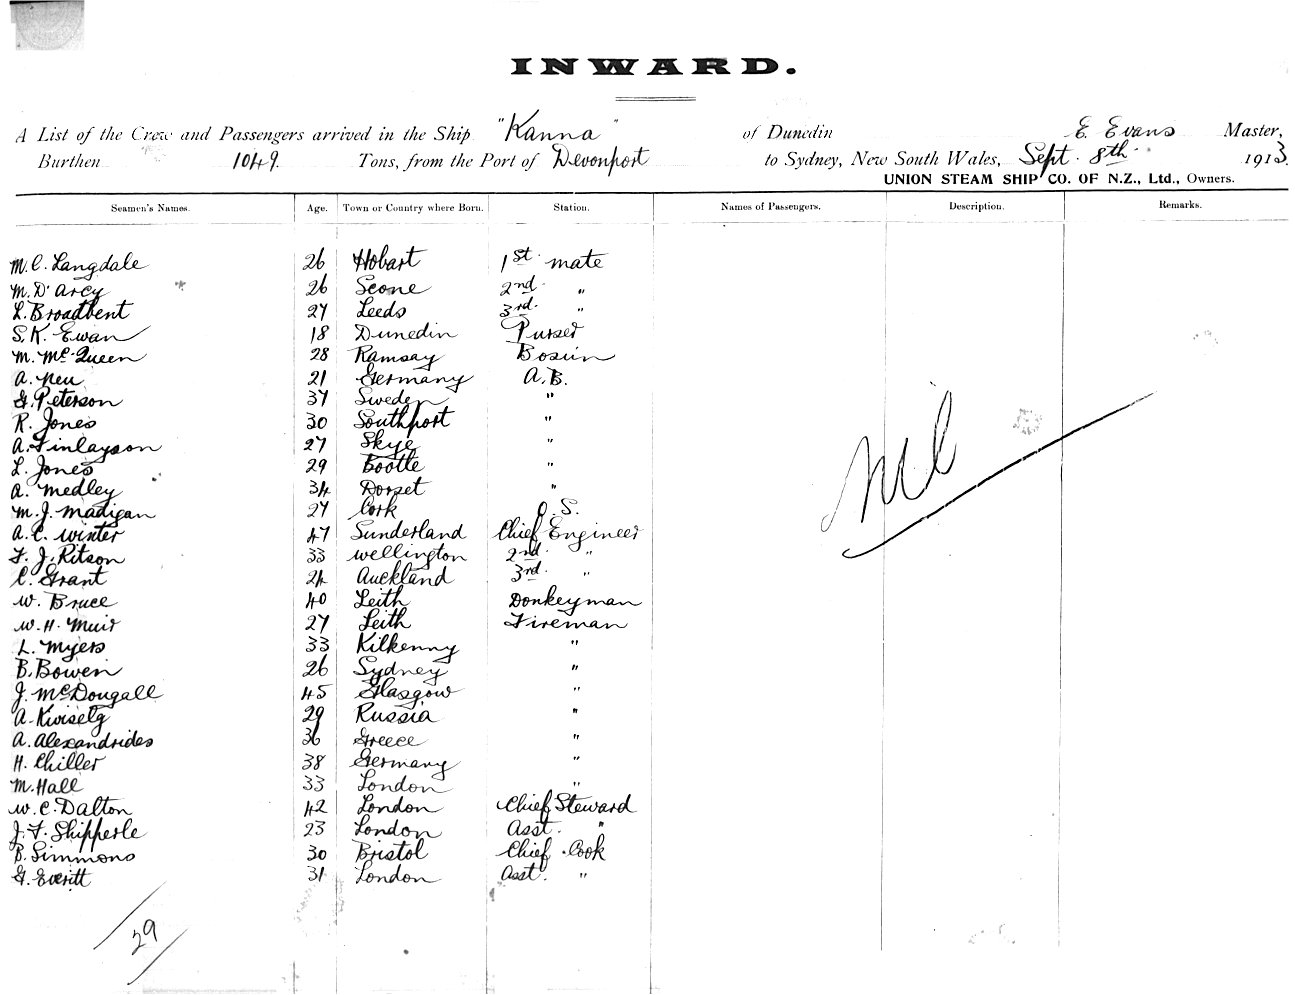 INWARD.
A List of the Crew and Passengers arrived in the Ship "Kanna" of Dunedin E. Evans Master,
Burthen 1049. Tons, from the Port of Devonport to Sydney, New South Wales, Sept. 8th 1913.
UNION STEAM SHIP CO. OF N.Z., Ltd., Owners.
Seamen's Names. Age. Town or Country where Born. Station. Names of Passengers. Description. Remarks.
M. C. Langdale 26 Hobart 1st mate
M. D'Arcy 26 Scone 2nd. "
L. Broadbent 27 Leeds 3rd. "
S. K. Ewan 18 Dunedin Purser
M. McQueen 28 Ramsay Bosun
A. Neu 21 Germany A.B.
G. Peterson 37 Sweden "
R. Jones 30 Southport "
A. Finlayson 27 Skye "
L. Jones 29 Bootle "
A. Medley 34 Dorset "
M. J. Madigan 27 Cork O.S.
A. C. Winter 47 Sunderland Chief Engineer
F. J. Ritson 33 Wellington 2nd. "
C. Grant 24 Auckland 3rd. "
W. Bruce 40 Leith Donkeyman
W. H. Muir 27 Leith Fireman
L. Myers 33 Kilkenny "
B. Bowen 26 Sydney "
J. McDougall 45 Glasgow "
A. 29 Russia "
A. Alexandrides 36 Greece "
H. Chiller 38 Germany "
M. Hall 33 London "
W. C. Dalton 42 London Chief Steward
J. F. Shipperle 23 London Asst. "
B. Simmons 30 Bristol Chief Cook
G. Everitt 31 London Asst. "
Nil
29